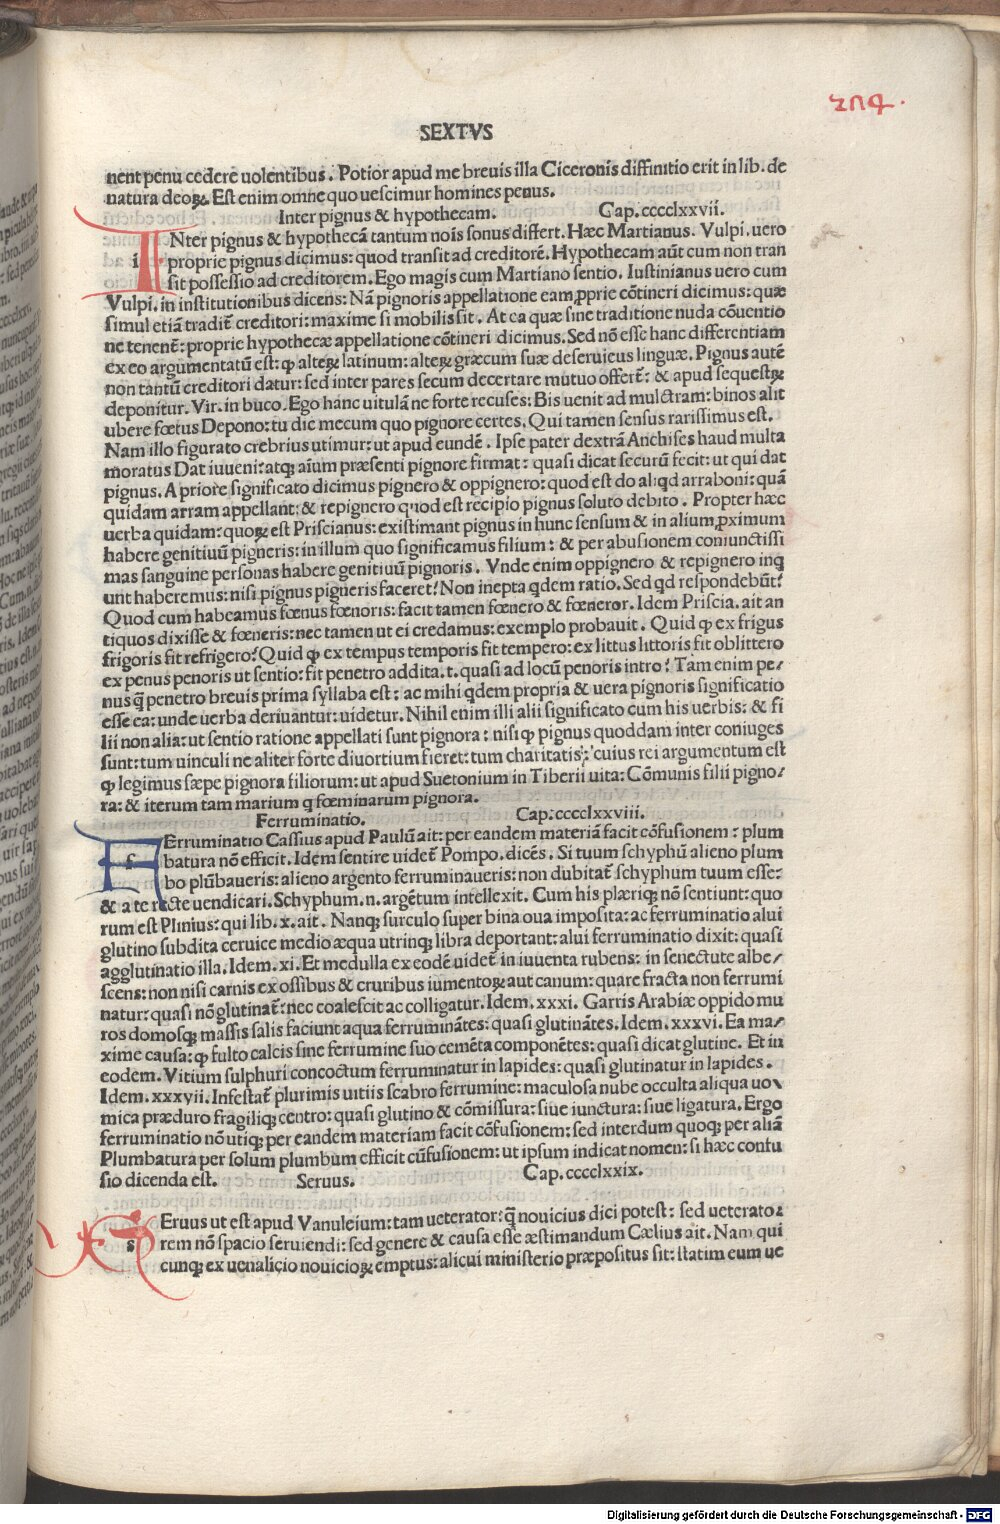 204.
SEXTVS
nent penu cedere uolentibus. Potior apud me breuis illa Ciceronis diffinitio erit in lib. de
natura deoꝝ. Est enim omne quo uescimur homines penus.
Inter pignus & hypothecam. Cap. cccclxxvii.
INter pignus & hypothecã tantum nois sonus differt. Hæc Martianus. Vulpi. uero
proprie pignus dicimus: quod transit ad creditorẽ. Hypothecam aũt cum non tran
sit possessio ad creditorem. Ego magis cum Martiano sentio. Iustinianus uero cum
Vulpi. in institutionibus dicens: Nã pignoris appellatione eam ꝓprie cõtineri dicimus: quæ
simul etiã tradit̃ creditori: maxime si mobilis sit. At ea quæ sine traditione nuda cõuentio
ne tenent̃: proprie hypothecæ appellatione cõtineri dicimus. Sed nõ esse hanc differentiam
ex eo argumentatũ est: ꝙ alteꝝ latinum: alteꝝ græcum suæ deseruicus linguæ. Pignus autẽ
non tantũ creditori datur: sed inter pares secum decertare mutuo offert̃: & apud sequestꝝ
deponitur. Vir. in buco. Ego hanc uitulã ne forte recuses: Bis uenit ad mulctram: binos alit
ubere fœtus Depono: tu dic mecum quo pignore certes. Qui tamen sensus rarissimus est.
Nam illo figurato crebrius utimur: ut apud eundẽ. Ipse pater dextrã Anchises haud multa
moratus Dat iuueni: atqꝫ aium præsenti pignore firmat: quasi dicat securũ fecit: ut qui dat
pignus. A priore significato dicimus pignero & oppignero: quod est do aliqd arraboni: quã
quidam arram appellant: & repignero quod est recipio pignus soluto debito. Propter hæc
uerba quidam: quoꝝ est Priscianus: existimant pignus in hunc sensum & in alium ꝓximum
habere genitiuũ pigneris: in illum quo significamus filium: & per abusionem coniunctissi
mas sanguine personas habere genitiuũ pignoris. Vnde enim oppignero & repignero inq
unt haberemus: nisi pignus pigneris faceret? Non inepta qdem ratio. Sed qd respondebũt?
Quod cum habeamus fœnus fœnoris: facit tamen fœnero & fœneror. Idem Priscia. ait an
tiquos dixisse & fœneris: nec tamen ut ei credamus: exemplo probauit. Quid ꝙ ex frigus
frigoris fit refrigero? Quid ꝙ ex tempus temporis fit tempero: ex littus littoris fit oblittero
ex penus penoris ut sentio: fit penetro addita. t. quasi ad locũ penoris intro? Tam enim pe/
nus q̃ penetro breuis prima syllaba est: ac mihi qdem propria & uera pignoris significatio
esse ea: unde uerba deriuantur: uidetur. Nihil enim illi alii significato cum his uerbis: & fi
lii non alia: ut sentio ratione appellati sunt pignora: nisi ꝙ pignus quoddam inter coniuges
sunt: tum uinculi ne aliter forte diuortium fieret: tum charitatis: cuius rei argumentum est
ꝙ legimus sæpe pignora filiorum: ut apud Suetonium in Tiberii uita: Cõmunis filii pigno/
ra: & iterum tam marium q fœminarum pignora.
Ferruminatio. Cap. cccclxxviii.
fErruminatio Cassius apud Paulũ ait: per eandem materiã facit cõfusionem: plum
batura nõ efficit. Idem sentire uidet̃ Pompo. dicẽs. Si tuum schyphũ alieno plum
bo plũbaueris: alieno argento ferruminaueris: non dubitat̃ schyphum tuum esse:
& a te recte uendicari. Schyphum. n. argẽtum intellexit. Cum his plæriqꝫ nõ sentiunt: quo
rum est Plinius: qui lib. x. ait. Nanqꝫ surculo super bina oua imposita: ac ferruminatio alui
glutino subdita ceruice medio æqua utrinqꝫ libra deportant: alui ferruminatio dixit: quasi
agglutinatio illa. Idem. xi. Et medulla ex eodẽ uidet̃ in iuuenta rubens: in senectute albe/
scens: non nisi carnis ex ossibus & cruribus iumentoꝝ aut canum: quare fracta non ferrumi
natur: quasi nõ glutinat̃: nec coalescit ac colligatur. Idem. xxxi. Garris Arabiæ oppido mu
ros domosqꝫ massis salis faciunt aqua ferruminãtes: quasi glutinãtes. Idem. xxxvi. Ea ma/
xime causa: ꝙ fulto calcis sine ferrumine suo cemẽta componẽtes: quasi dicat glutine. Et in
eodem. Vitium sulphuri concoctum ferruminatur in lapides: quasi glutinatur in lapides.
Idem. xxxvii. Infestat̃ plurimis uitiis scabro ferrumine: maculosa nube occulta aliqua uo\
mica præduro fragiliqꝫ centro: quasi glutino & cõmissura: siue iunctura: siue ligatura. Ergo
ferruminatio nõ utiqꝫ per eandem materiam facit cõfusionem: sed interdum quoqꝫ per aliã
Plumbatura per solum plumbum efficit cũfusionem: ut ipsum indicat nomen: si hæc confu
sio dicenda est. Seruus. Cap. cccclxxix.
sEruus ut est apud Vanuleium: tam ueterator: q̃ nouicius dici potest: sed ueterato:
rem nõ spacio seruiendi: sed genere & causa esse æstimandum Cælius ait. Nam qui
cunqꝫ ex uenalicio nouicioꝝ emptus: alicui ministerio præpositus sit: statim eum ue
Digitalisierung gefördert durch die Deutsche Forschungsgemeinschaft - DFG